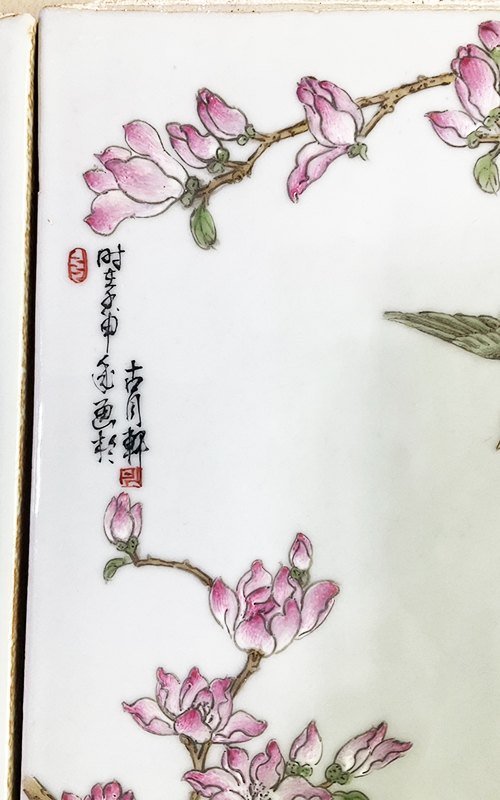 时在壬申年画於
古月軒